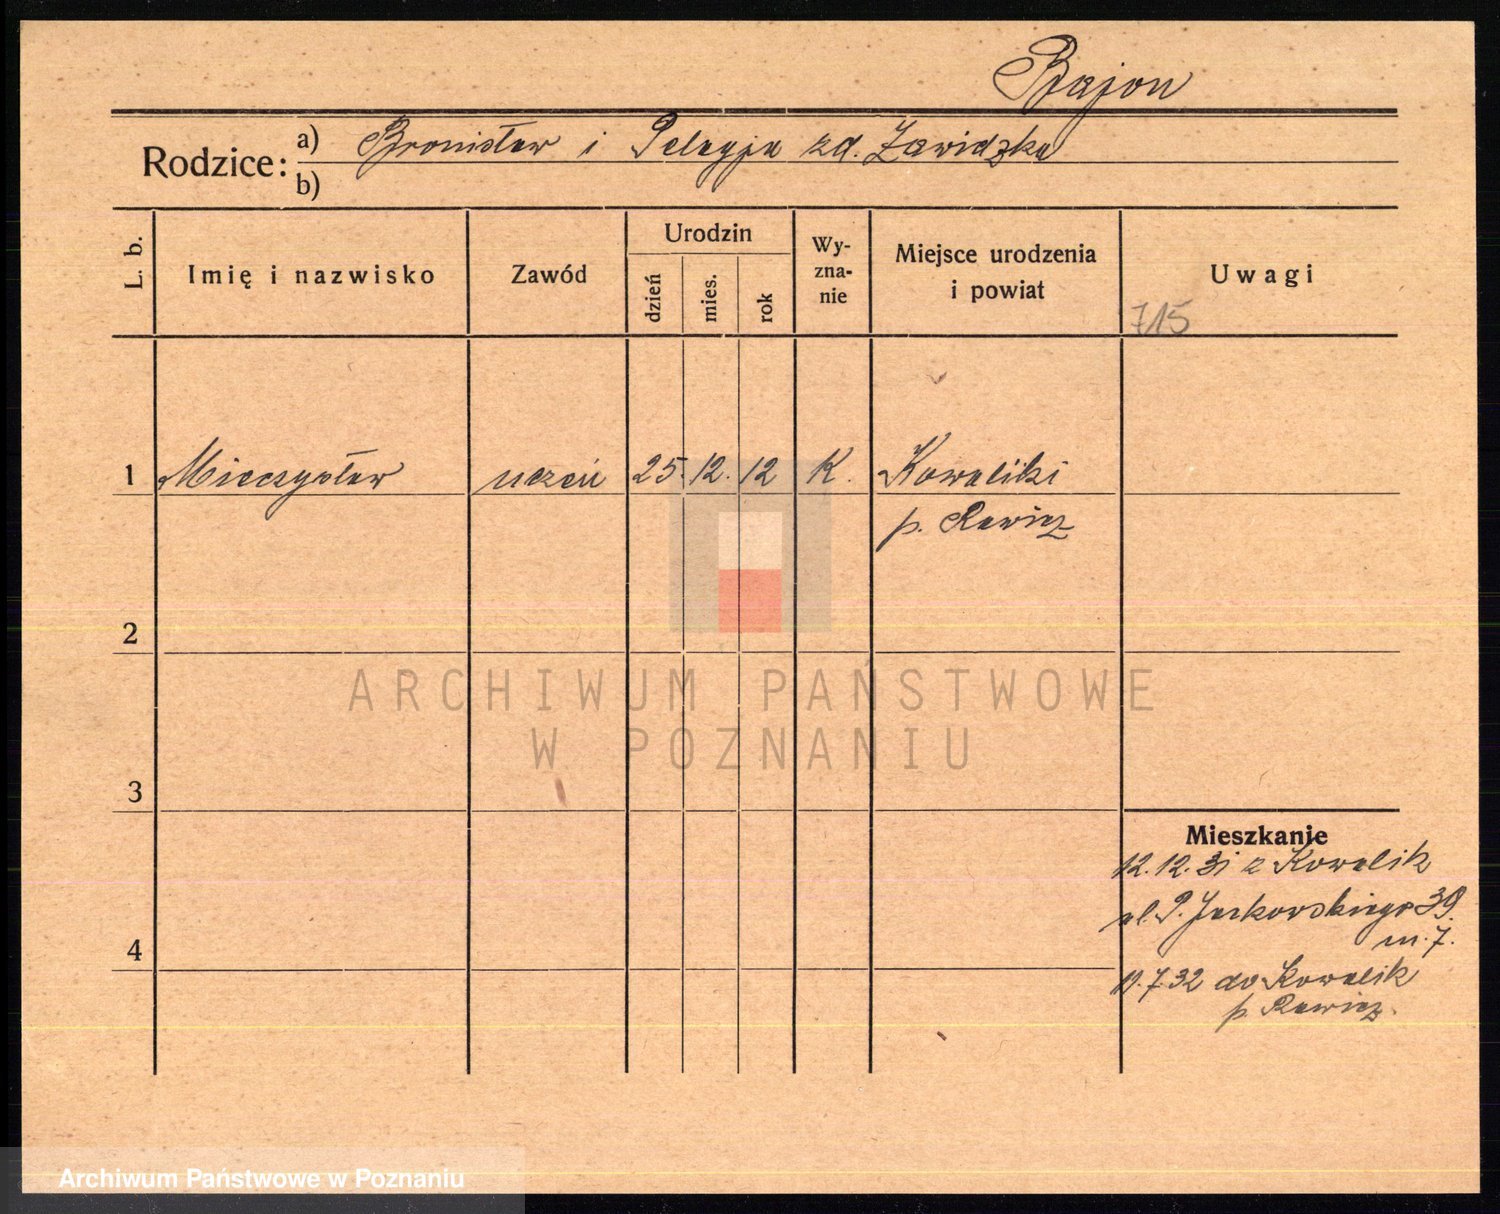 Bajon
Rodzice: a) Bronisław i Pelagja zd. Zawidzka
b)
L. b.
Imię i nazwisko
Zawód
Urodzin
dzień
mies.
rok
Wy-
zna-
nie
Miejsce urodzenia
i powiat
Uwagi
715
1 Mieczysław uczeń 25. 12. 12 K. Kowaliki
p. Rawicz
2
3
4
Mieszkanie
12.12.31 z Kowalik
ul. P. Jackowskiego 39.
m. 7.
11.7.32 do Kowalik
p. Rawicz.
ARCHIWUM PAŃSTWOWE
W POZNANIU
Archiwum Państwowe w Poznaniu